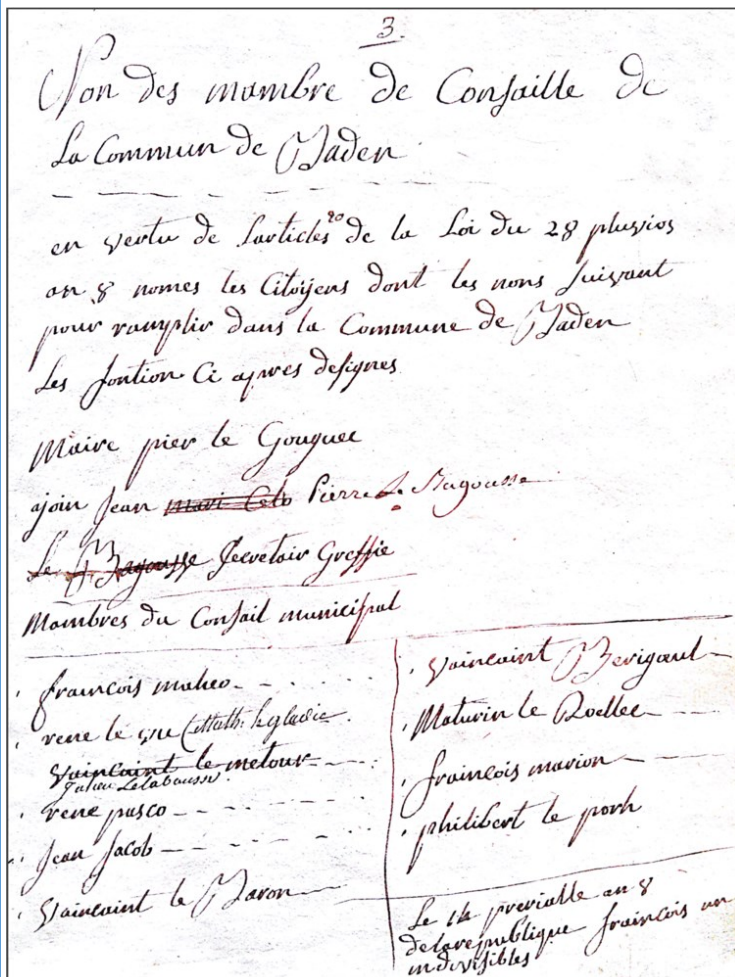 3.
Non des mambre de Consaille de
La Commun de Baden
en vertu de Larticles 20 de la Loi du 28 pluvios
an 8 nomes les Citoÿens dont les nons suivant
pour ramplir dans la Commune de Baden
Les fontion Ci apres designes
Maire pier le Gouguec
ajoin Jean mari Pierre Le Bagousse
Le Bagousse Secretair Greffie
Mambres du Consail municipal
francois maheo
rene le
vaincaint le metour
rene pasco
Jean Jacob
Vaincaint le Baron
Vaincaint Berigaud
Maturin le Roellec
francois marion
philibert le porh
Le 14 prerialle an 8
delarepublique francois un
indivisibles